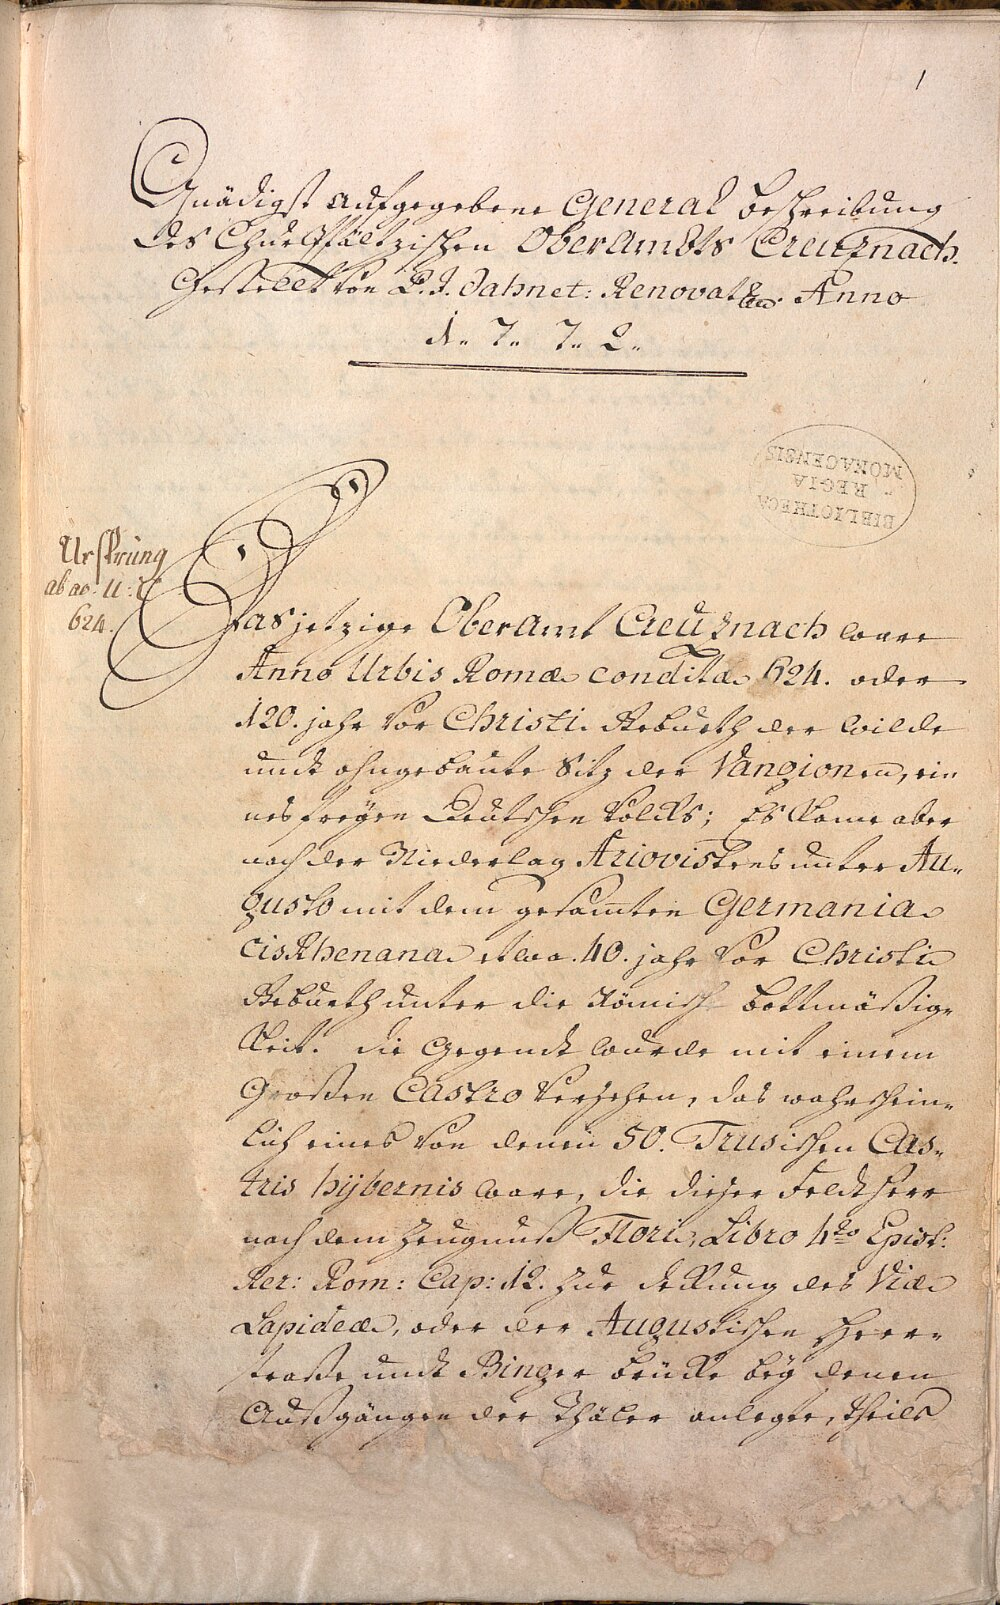 1
Gnädigst aufgegebene General beschreibung
des Chur Pfältzischen Oberambts Creutznach.
Gestellt von P. J. Jahnet: Renovat: Anno
1. 7. 7. 2.
BIBLIOTHECA
REGIA
MONACENSIS
Ursprung
ab ao: U: C
624.
Das jetzige Oberamt Creutznach ware
Anno Urbis Romæ conditæ 624. oder
120. jahr vor Christi Gebueth der wilde
undt ohngebaute Sitz der Vangionen, ei
nes freyen Deutschen Volcks; Es kame aber
nach der Niederlag Ariovistens unter Au-
gusto mit dem gesamten Germania
cisRhenana etwa 40. jahr vor Christi
Gebueth unter die Römisch bottmäßig-
keit. die Gegendt wurde mit einem
Großen Castro versehen, das wahrschein-
lich eines von denen 50. Trusischen Cas-
tris hijbernis ware, die dieser Feldtherr
nach dem Zeugnuß Flori, Libro 4to Epist:
Rer: Rom: Cap: 12. zur deckung des Viæ
Lapideæ, oder der Augustischen Heer-
straße undt Binger brücke bey denen
Außgängen der Thäler anlegte, theils